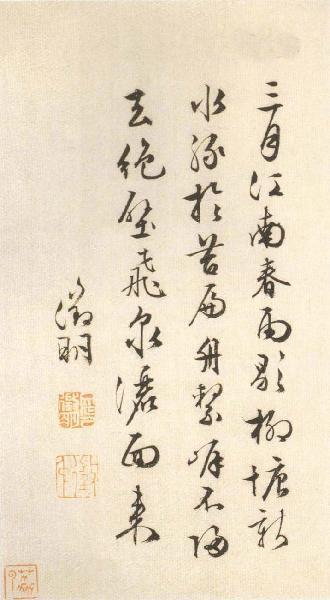 三月江南春雨歇柳塘新
水緑於苔扁舟繫岸不歸
去絶壁飛泉灑面来
徵明